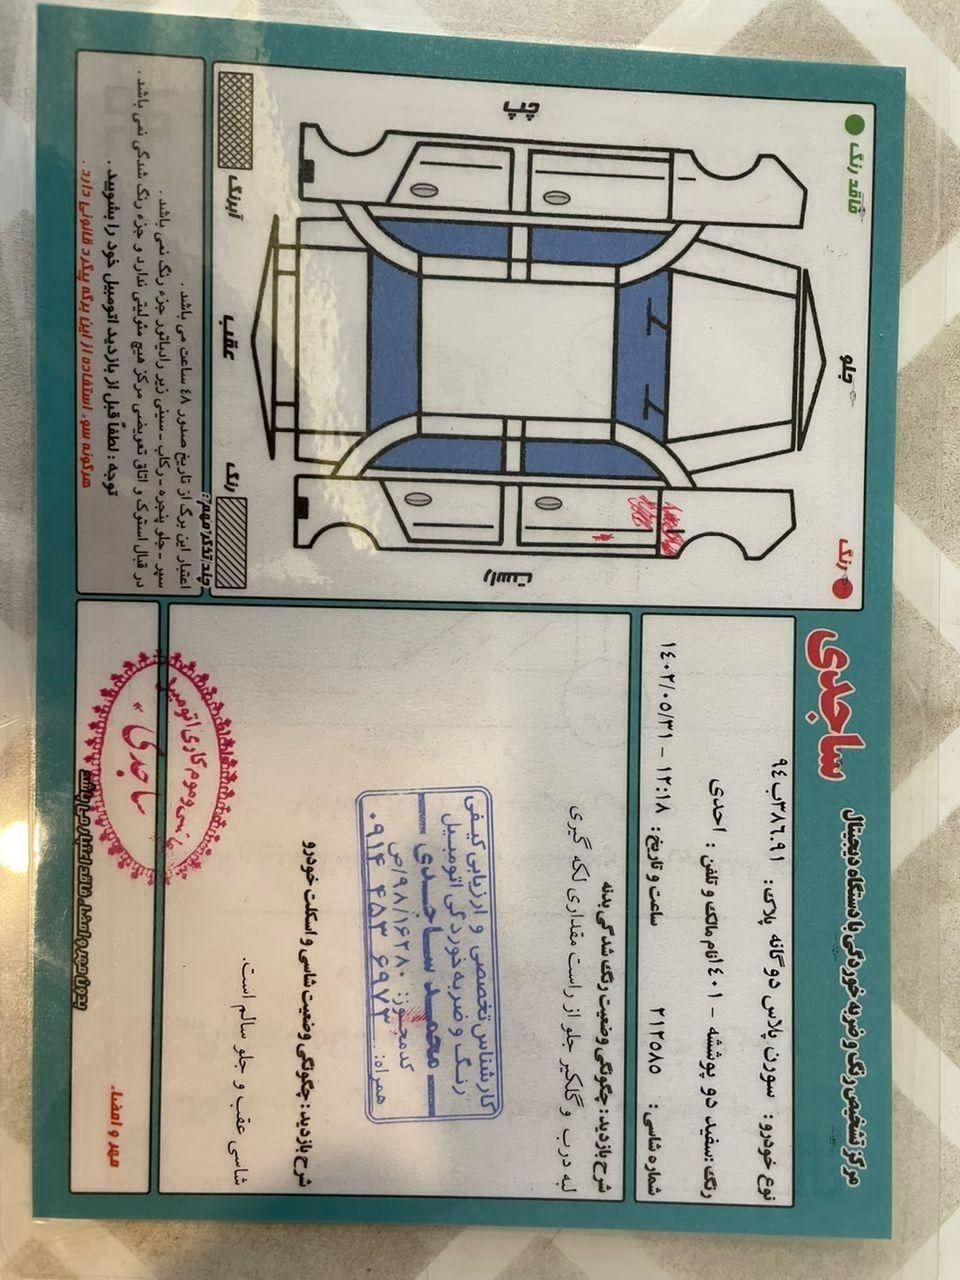 ساجدی
مرکز تشخیص رنگ و ضربه خوردگی با دستگاه دیجیتال
نوع خودرو: سورن پلاس دوگانه پلاک: ۹۴ب۳۸۶.۹۱
رنگ: سفید دو پوششه - ۱۴۰۱ نام مالک و تلفن: احدی
شماره شاسی: ۲۱۲۵۸۵ ساعت و تاریخ: ۱۲:۱۸ - ۱۴۰۲/۰۵/۳۱
شرح بازدید: چگونگی وضعیت رنگ شدگی بدنه
لبه درب و گلگیر جلو از راست مقداری لکه گیری
کارشناس تخصصی و ارزیابی کیفی
رنگ و ضربه خوردگی اتومبیل
محمد ساجدی
کد مجوز: ۹۸/۱۶۲۸۰/ص
همراه: ۰۹۱۴ ۴۵۳ ۶۹۷۳
شرح بازدید: چگونگی وضعیت شاسی و اسکلت خودرو
شاسی عقب و جلو سالم است.
مهر و امضاء
موم کاری اتومبیل
ساجدی
بدون مهر و امضاء فاقد اعتبار می باشد
فاقد رنگ
جلو
رنگ
چپ
راست
آبرنگ
عقب
رنگ
چند تذکر مهم
اعتبار این برگ از تاریخ صدور ۴۸ ساعت می باشد.
سپر - جلو پنجره - رکاب - سینی زیر رادیاتور جزء رنگ نمی باشد.
در قبال استوک و اتاق تعویضی مرکز هیچ مسئولیتی ندارد و جزء رنگ شدگی نمی باشد.
توجه: لطفاً قبل از بازدید اتومبیل خود را بشویید.
هرگونه سوء استفاده از این برگه پیگرد قانونی دارد.